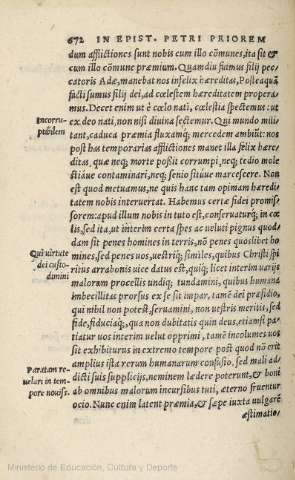 672 IN EPIST. PETRI PRIOREM
dum afflictiones sunt nobis cum illo cõmunes, ita sit &
cum illo cõmune præmium. Quamdiu fuimus filij pec=
catoris Adæ, manebat nos infelix hæreditas. Posteaquã
facti sumus filij dei, ad cœlestem hæreditatem propera=
mus. Decet enim ut è cœlo nati, cœlestia spectemus: ut
ex deo nati, non nisi diuina sectemur. Qui mundo mili=
Incorru=
ptibilem
tant, caduca præmia fluxamq́; mercedem ambiũt: nos
post has temporarias afflictiones manet illa felix hære=
ditas, quæ neq; morte possit corrumpi, neq; tedio mole
stiáue contaminari, neq; senio sitúue marcescere. Non
est quod metuamus, ne quis hanc tam opimam hæredi
tatem nobis interuertat. Habemus certæ fidei promis=
sorem: apud illum nobis in tuto est, conseruaturq́; in cœ
lis, sed ita, ut interim certa spes ac ueluti pignus quod=
dam sit penes homines in terris, nõ penes quoslibet ho
Qui uirtute
dei custo=
dimini
mines, sed penes uos, uestriq́; similes, quibus Christi spi
ritus arrabonis uice datus est, quiq́; licet interim uarijs
malorum procellis undiq; tundamini, quibus humana
imbecillitas prorsus ex se sit impar, tamẽ dei præsidio,
qui nihil non potest, seruamini, non uestris meritis, sed
fide, fiduciaq́;, qua non dubitatis quin deus, etiamsi pa=
tiatur uos interim uelut opprimi, tamẽ incolumes uos
sit exhibiturus in extremo tempore post quod nõ erit
Paratam re=
uelari in tem=
pore nouiss.
amplius ista rerum humanarum confusio. sed mali ad=
dicti suis supplicijs, neminem lædere poterunt, & boni
ab omnibus malorum incursibus tuti, æterno fruentur
ocio. Nunc enim latent præmia, & sæpe iuxta uulgarẽ
æstimatio=
Ministerio de Educación, Cultura y Deporte